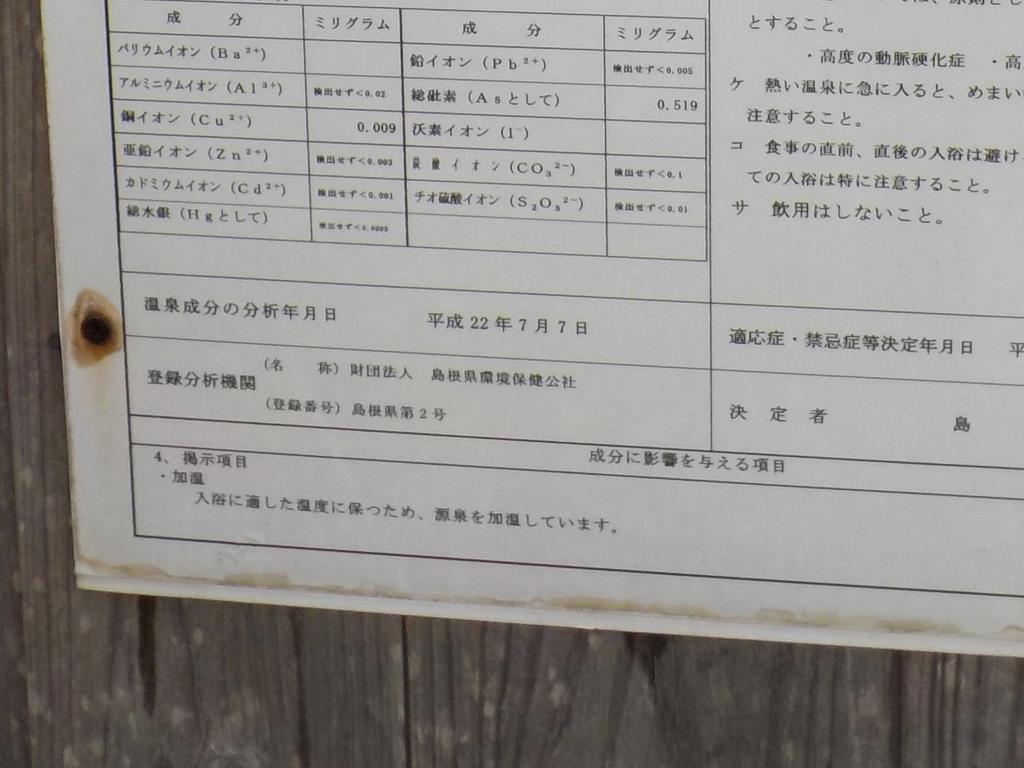 成 分 ミリグラム 成 分 ミリグラム
バリウムイオン（Ba²⁺） 鉛イオン（Pb²⁺） 検出せず＜0.005
アルミニウムイオン（Al³⁺） 検出せず＜0.02 総砒素（Asとして） 0.519
銅イオン（Cu²⁺） 0.009 沃素イオン（I⁻）
亜鉛イオン（Zn²⁺） 検出せず＜0.003 炭酸イオン（CO₃²⁻） 検出せず＜0.1
カドミウムイオン（Cd²⁺） 検出せず＜0.001 チオ硫酸イオン（S₂O₃²⁻） 検出せず＜0.01
総水銀（Hgとして） 検出せず＜0.0005
温泉成分の分析年月日 平成22年7月7日
登録分析機関
（名 称）財団法人 島根県環境保健公社
（登録番号）島根県第2号
4、掲示項目 成分に影響を与える項目
・加温
入浴に適した温度に保つため、源泉を加温しています。
とすること。
・高度の動脈硬化症 ・高
ケ 熱い温泉に急に入ると、めまい
注意すること。
コ 食事の直前、直後の入浴は避け
ての入浴は特に注意すること。
サ 飲用はしないこと。
適応症・禁忌症等決定年月日 平
決 定 者 島